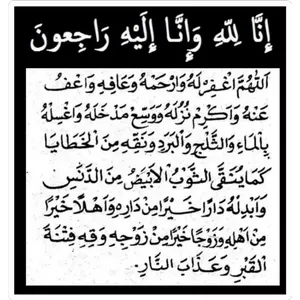 إِنَّا لِلّهِ وَإِنَّا إِلَيْهِ رَاجِعونَ
اَللّٰهُمَّ اغْفِرْ لَهُ وَارْحَمْهُ وَعَافِهِ وَاعْفُ
عَنْهُ وَاَكْرِمْ نُزُلَهُ وَوَسِّعْ مَدْخَلَهُ وَاغْسِلْهُ
بِالْمَاءِ وَالثَّلْجِ وَالْبَرَدِ وَنَقِّهِ مِنَ الْخَطَايَا
كَمَا يُنَقَّى الثَّوْبُ الْاَبْيَضُ مِنَ الدَّنَسِ
وَاَبْدِلْهُ دَارًا خَيْرًا مِنْ دَارِهِ وَاَهْلًا خَيْرًا
مِنْ اَهْلِهِ وَزَوْجًا خَيْرًا مِنْ زَوْجِهِ وَقِهِ فِتْنَةَ
الْقَبْرِ وَعَذَابَ النَّارِ.